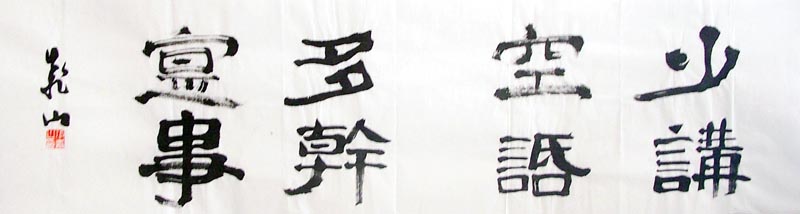 少講
空話
多幹
實事
乾山